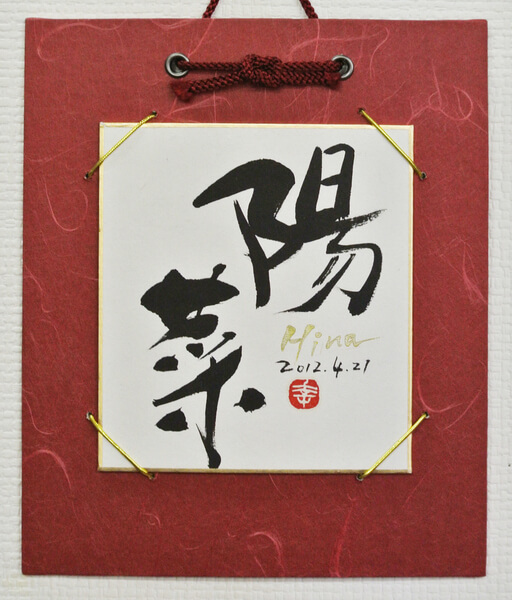 陽菜
Hina
2012.4.21
幸